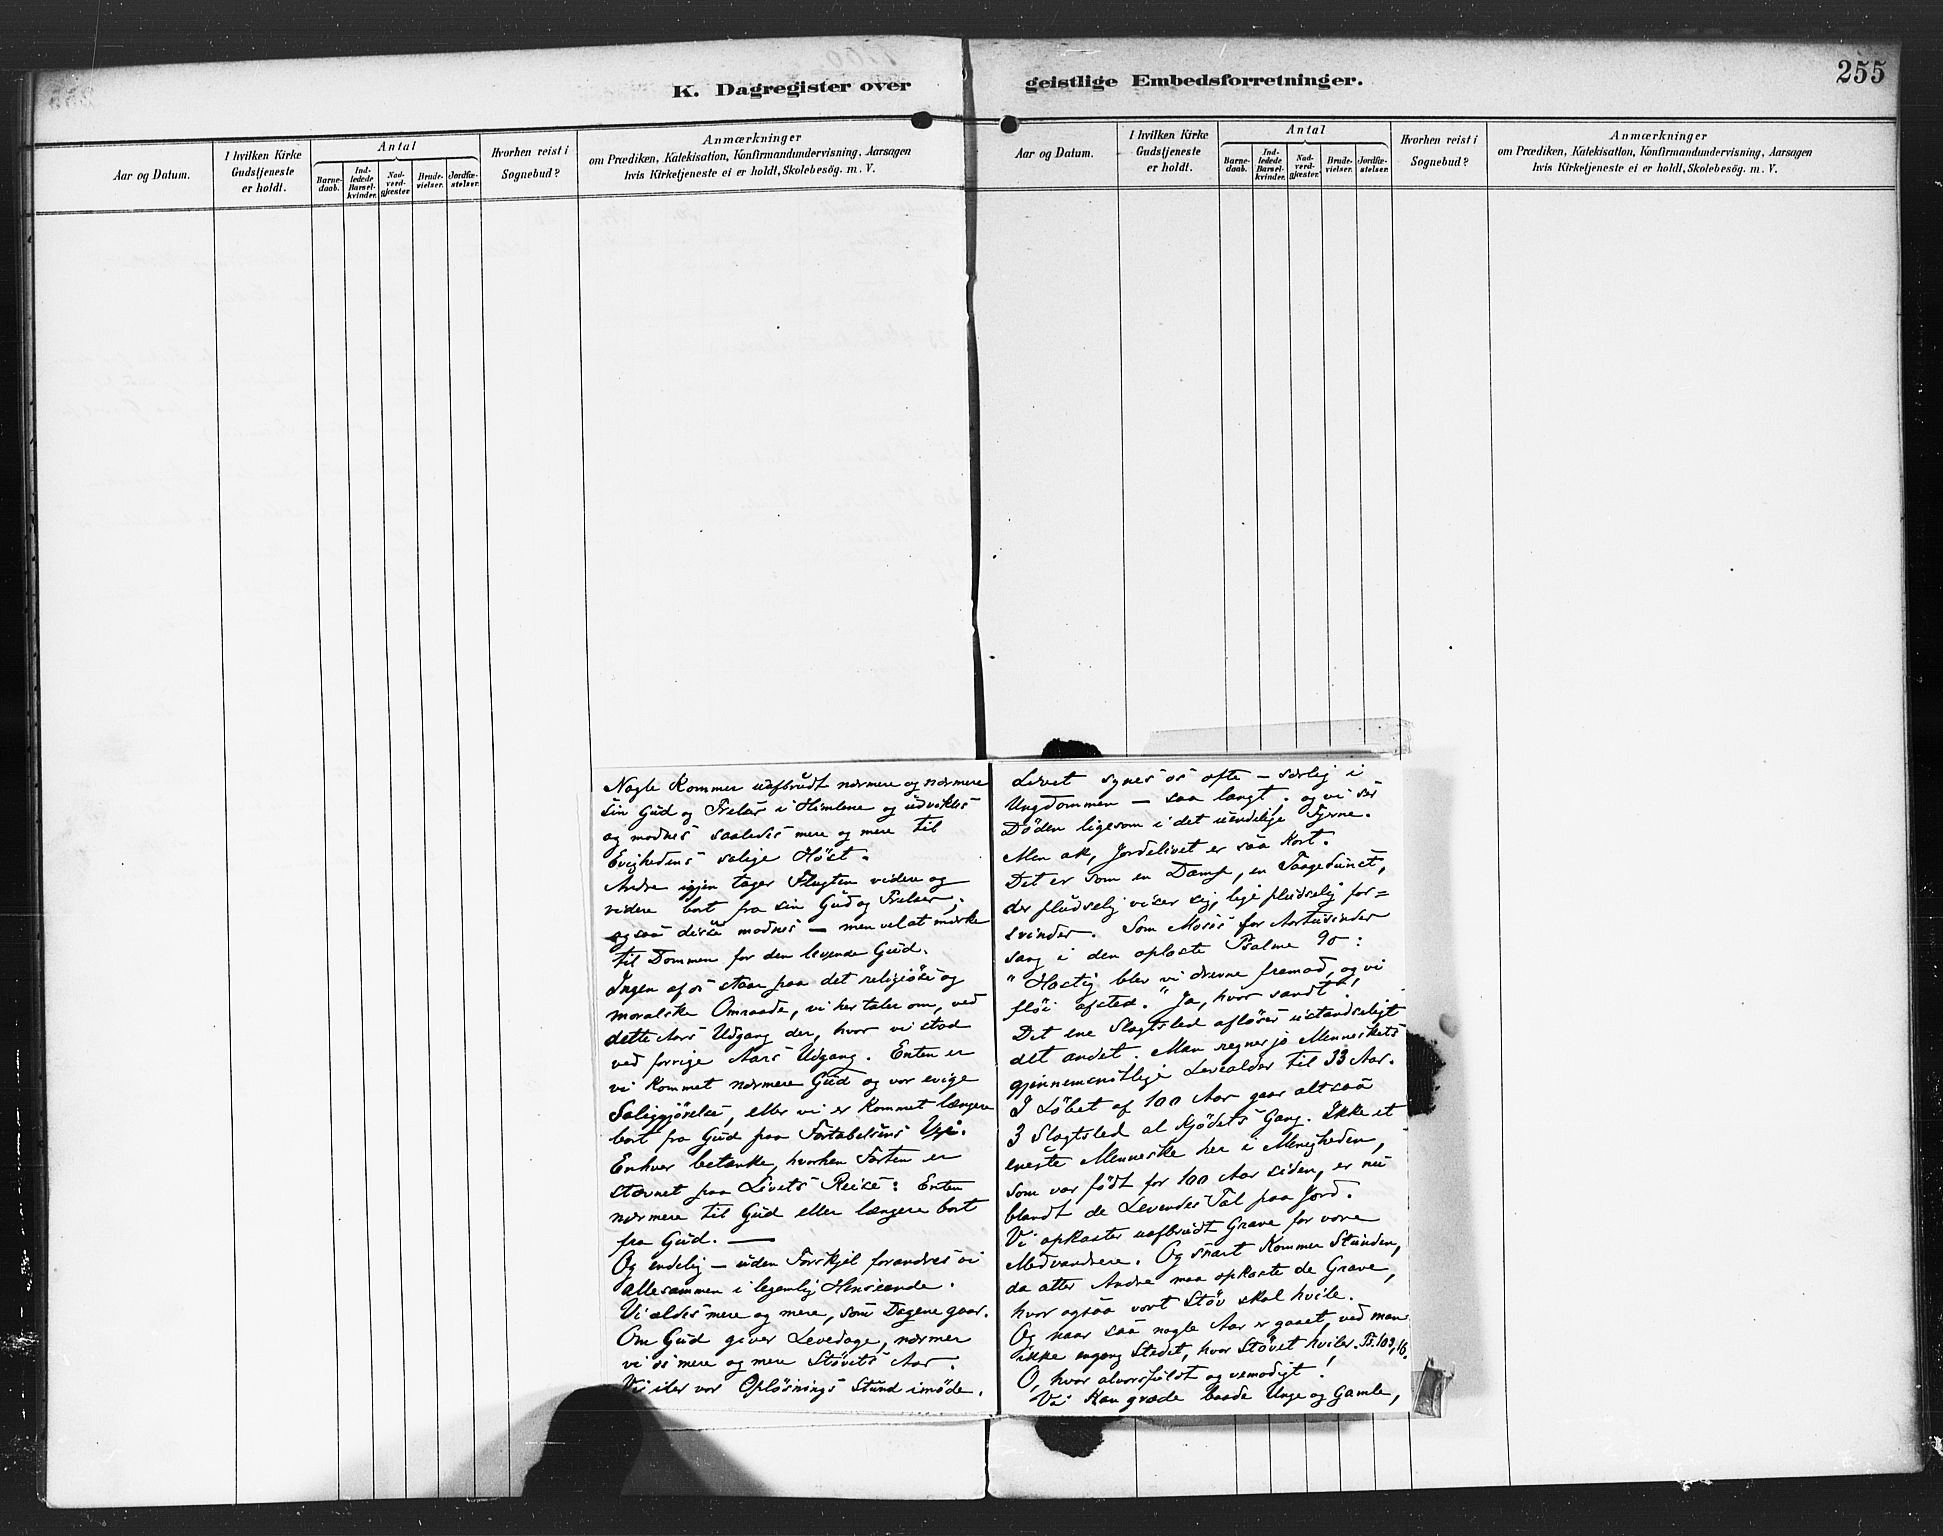 K. Dagregister over geistlige Embedsforretninger.
255
Aar og Datum.
I hvilken Kirke
Gudstjeneste
er holdt.
Antal
Barne-
daab.
Ind-
ledede
Barsel-
kvinder.
Nad-
verd-
gjæster.
Brude-
vielser.
Jordfæ-
stelser.
Hvorhen reist i
Sognebud?
Anmærkninger
om Prædiken, Katekisation, Konfirmandundervisning, Aarsagen
hvis Kirketjeneste ei er holdt, Skolebesög. m. V.
Aar og Datum.
I hvilken Kirke
Gudstjeneste
er holdt.
Antal
Barne-
daab.
Ind-
ledede
Barsel-
kvinder.
Nad-
verd-
gjæster.
Brude-
vielser.
Jordfæ-
stelser.
Hvorhen reist i
Sognebud?
Anmærkninger
om Prædiken, Katekisation, Konfirmandundervisning, Aarsagen
hvis Kirketjeneste ei er holdt, Skolebesög. m. V.
Nogle kommer uafbrudt nærmere og nærmere
sin Gud og Frelser i Himlene og udvikles
og modnes saaledes mere og mere til
Evighedens salige Høst.
Andre igjen tager Flugten videre og
videre bort fra sin Gud og Frelser;
og saa disse modnes – men vel at mærke
til Dommen for den levende Gud.
Ingen af os staar paa det religiøse og
moralske Omraade, vi her taler om, ved
dette Aars Udgang der, hvor vi stod
ved forrige Aars Udgang. Enten er
vi kommet nærmere Gud og vor evige
Saliggjørelse, eller vi er kommet længere
bort fra Gud paa Fortabelsens Vei.
Enhver betænke, hvorhen Farten er
stævnet paa Livets Reise: Enten
nærmere til Gud eller længere bort
fra Gud. —
Og endelig – uden Forskjel forandres vi
allesammen i legemlig Henseende.
Vi ældes mere og mere, som Dagene gaar.
Om Gud giver Levedage, nærmer
vi os mere og mere Støvets Aar.
Vi iler vor Opløsnings Stund imøde.
Livet synes os ofte – særlig i
Ungdommen – saa langt; og vi ser
Døden ligesom i det uendelige Fjerne.
Men ak, Jordelivet er saa kort.
Det er som en Damp, en Taagedunst,
der pludselig viser sig, lige pludselig for=
svinder. Som Moses for Aartusinder
sang i den oplæste Psalme 90:
"Hastig blev vi drevne fremad, og vi
fløi afsted." Ja, hvor sandt!
Det ene Slægtsled afløser ustandseligt
det andet. Man regner jo Menneskets
gjennemsnitlige Levealder til 33 Aar.
I Løbet af 100 Aar gaar altsaa
3 Slægtsled al Kjødets Gang. Ikke et
eneste Menneske her i Menigheden,
som var født for 100 Aar siden, er nu
blandt de Levendes Tal paa Jord.
Vi opkaster uafbrudt Grave for vore
Medvandrere. Og snart kommer Stunden,
da atter Andre maa opkaste de Grave,
hvor ogsaa vort Støv skal hvile.
Og naar saa nogle Aar er gaaet, ved man
ikke engang Stedet, hvor Støvet hviler. Ps. 103,16.
O, hvor alvorsfuldt og vemodigt!
Vi kan græde baade Unge og Gamle,